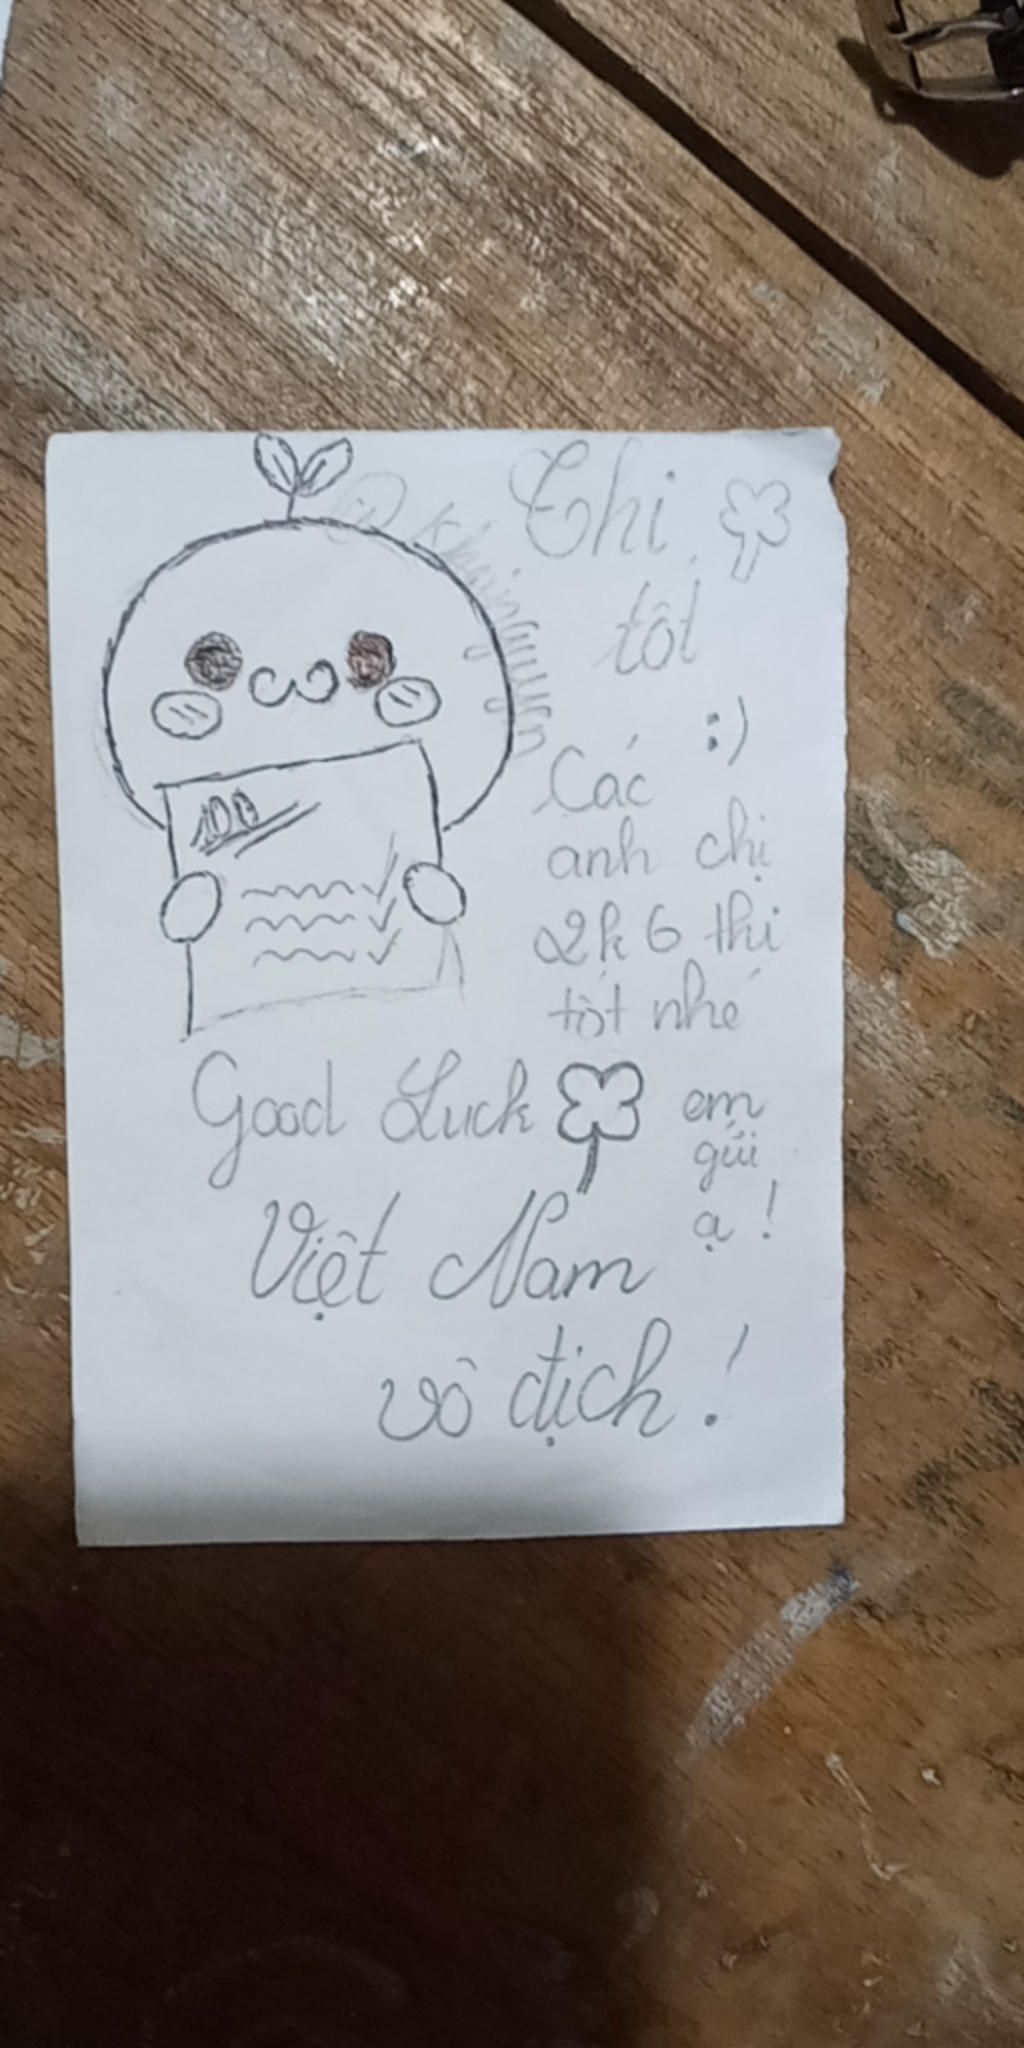 Thi
tốt
:)
Các
anh chị
2k6 thi
tốt nhé
100
Good Luck
em
gửi
ạ!
Việt Nam
vô địch!